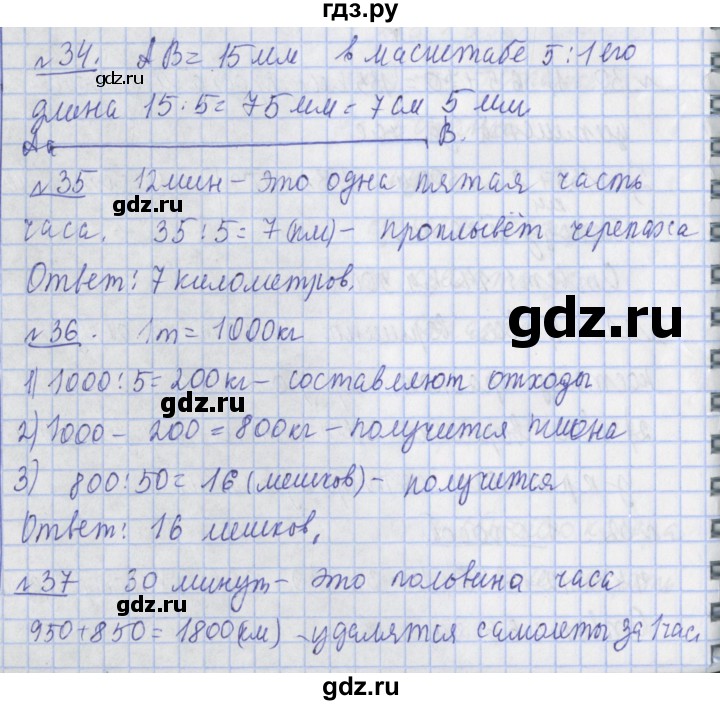 гдз.ру
№34. АВ = 15 мм в масштабе 5:1 его
длина 15·5 = 75 мм = 7 см 5 мм
А В.
№35 12 мин – это одна пятая часть
gdz.ru
часа. 35:5 = 7 (км) – проплывёт черепаха
Ответ: 7 километров.
gdz.ru
№36. 1 т = 1000 кг
1) 1000:5 = 200 кг – составляют отходы
2) 1000 – 200 = 800 кг – получится пшона
3) 800:50 = 16 (мешков) – получится
Ответ: 16 мешков.
№37 30 минут – это половина часа
gdz.ru
950+850 = 1800 (км) – удалятся самолеты за 1 час
gdz.ru